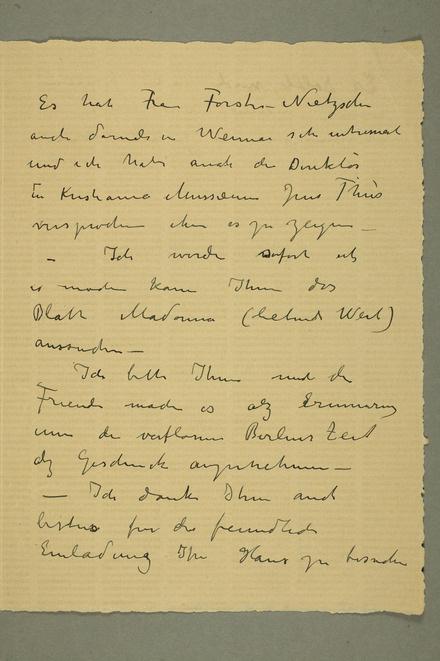 Es hat Frau Förster-Nietzsche
auch damals in Weimar sehr interessert
und ich habe auch den Direktör
in Kristiania Museum Jens Thiis
versprochen ihm es zu zeigen —
— Ich werde sofort ich
es machen kann Ihnen das
Blatt Madonna (liebendes Weib)
aussuchen —
Ich bitte Ihnen mir die
Freude machen es als Erinnerung
um die verflossene Berliner Zeit
als Geschenk anzunehmen —
— Ich danke Ihnen auch
bestens für die freundliche
Einladung Ihr Haus zu besuchen